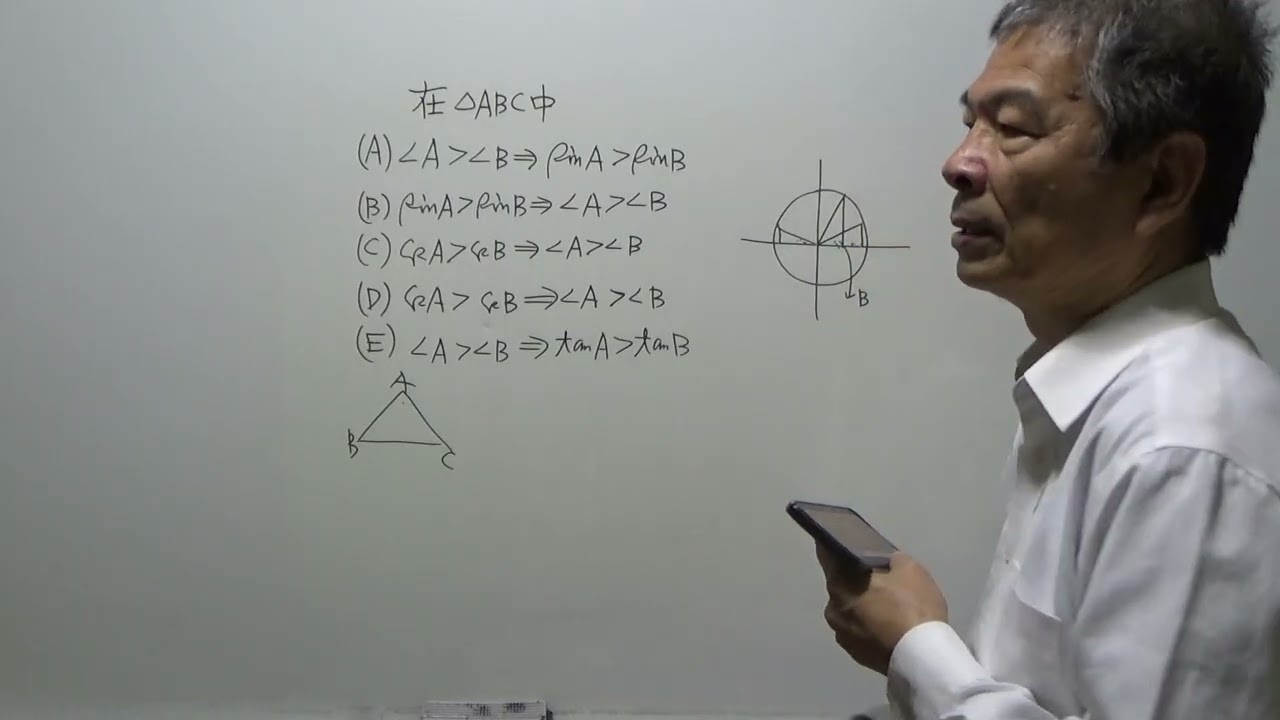 在 △ABC中
(A) ∠A > ∠B ⇒ sinA > sinB
(B) sinA > sinB ⇒ ∠A > ∠B
(C) cosA > cosB ⇒ ∠A > ∠B
(D) cosA > cosB ⇒ ∠A > ∠B
(E) ∠A > ∠B ⇒ tanA > tanB
B
A
B
C